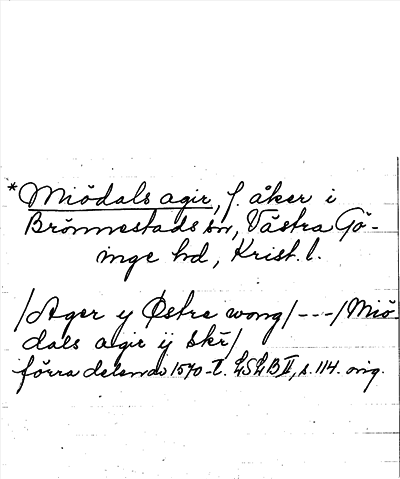 *Miödals agir, f. åker i
Brönnestads sn, Västra Gö-
inge hd, Krist. l.
/Ager y Østre wong/---/Miö
dals agir ÿ skr̄/
förra delen av 1570-t. LSLB II, s. 114. orig.